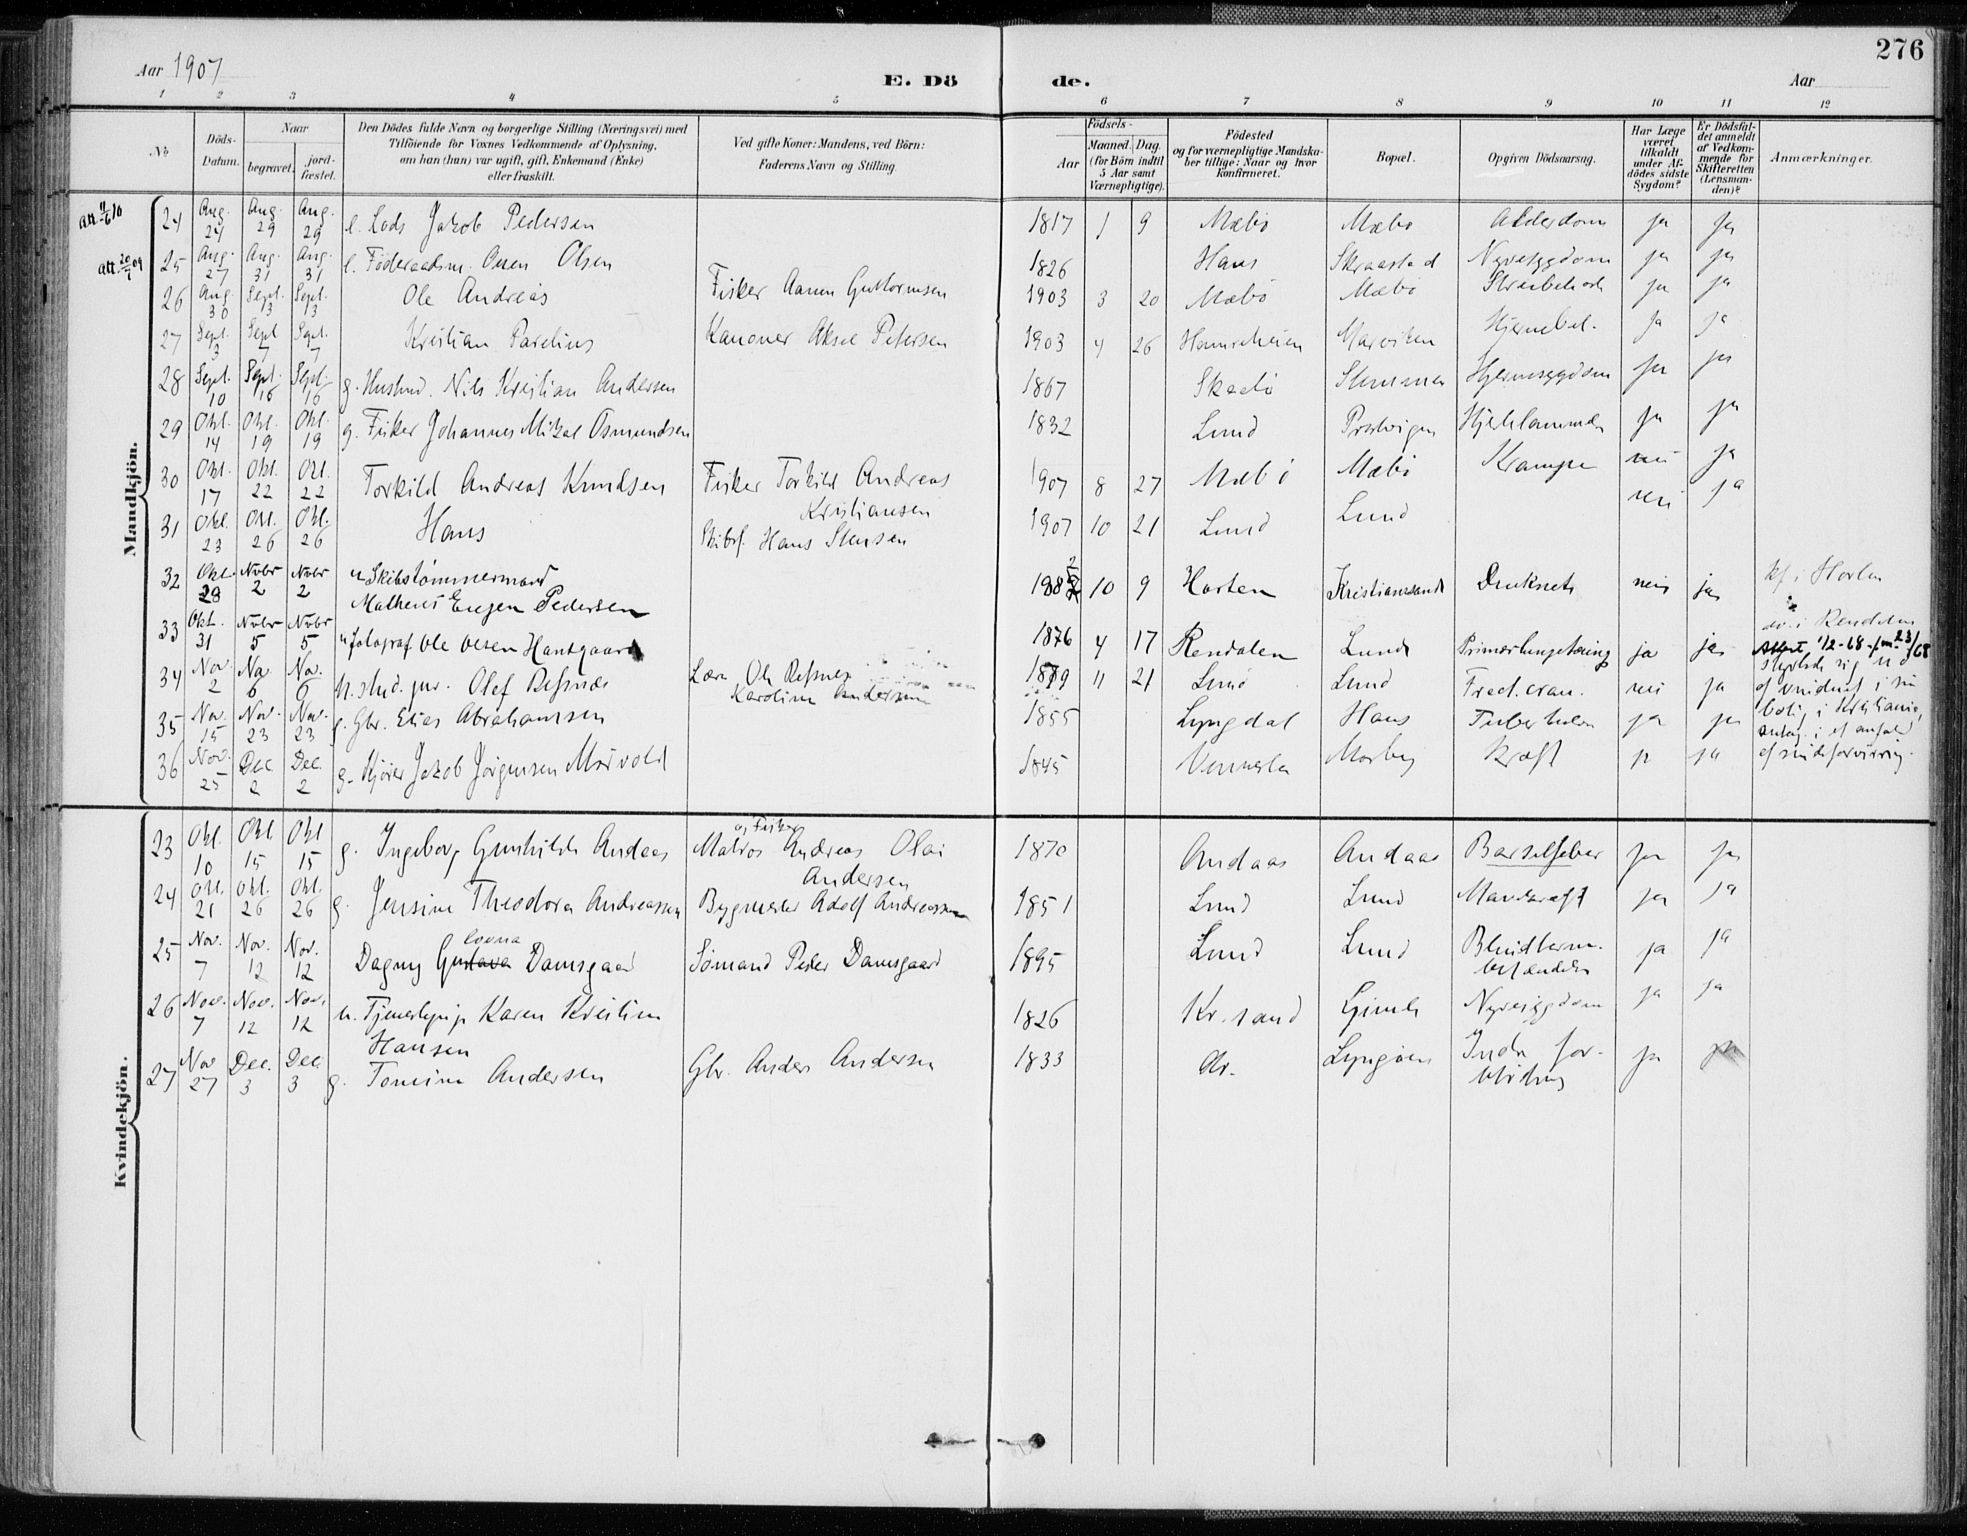 276
Aar 1907
E. Dö
de.
Aar
1 2 3 4 5 6 7 8 9 10 11 12
No
Döds-
Datum.
Naar
begravet.
jord-
fæstet.
Den Dödes fulde Navn og borgerlige Stilling (Næringsvei) med
Tilföiende for Voxnes Vedkommende af Oplysning,
om han (hun) var ugift, gift, Enkemand (Enke)
eller fraskilt.
Ved gifte Koner: Mandens, ved Börn:
Faderens Navn og Stilling.
Födsels-
Aar
Maaned. Dag.
(for Börn indtil
5 Aar samt
Værnepligtige).
Födested
og for værnepligtige Mandska-
ber tillige: Naar og hvor
konfirmeret.
Bopæl.
Opgiven Dödsaarsag.
Har Læge
været
tilkaldt
under Af-
dödes sidste
Sygdom?
Er Dödsfal-
det anmeldt
af Vedkom-
mende for
Skifteretten
(Lensman-
den)?
Anmærkninger.
Mandkjön.
Att. 11/6 10
24 Aug. 24 Aug. 29 Aug. 29 e. Lods Jakob Pedersen 1817 1 9 Mæbö Mæbö Alderdom ja ja
Att. 20/1 09
25 Aug. 27 Aug. 31 Aug. 31 e. Föderaadsm. Osen Olsen 1826 Haus Skraastad Nyresygdom ja ja
26 Aug. 30 Sept. 13 Sept. 13 Ole Andreas Fisker Aanen Guttormsen 1903 3 20 Mæbö Mæbö Strubehoste ja ja
27 Sept. 3 Sept 7 Sept. 7 Kristian Parelius Kanoner Aksel Petersen 1903 4 26 Hamreheien Marviken Hjernebet. ja ja
28 Sept. 10 Sept. 16 Sept. 16 g. Husmd. Nils Kristian Andersen 1867 Skaabö Stemmen Hjernesygdom ja ja
29 Okt. 14 Okt. 19 Okt. 19 g. Fisker Johannes Mikal Osmundsen 1832 Lund Prestvigen Hjertelammelse ja ja
30 Okt. 17 Okt. 22 Okt. 22 Torkild Andreas Knudsen Fisker Torkild Andreas
Kristiansen 1907 8 27 Mæbö Mæbö Krampe nei ja
31 Okt. 23 Okt. 26 Okt. 26 Hans Skibsf. Hans Stensen 1907 10 21 Lund Lund nei ja
32 Okt. 28 Novbr 2 Novbr 2 u Skibstömmermand
Matheus Eugen Pedersen 1882 10 9 Horten Kristianssand Druknet nei ja kf i Horten
33 Okt. 31 Novbr 5 Novbr 5 u fotograf Ole Olsen Hansgaard 1876 4 17 Rendalen Lund Primær lungetæring ja ja do. i Rendalen
Attest 1/2-68
34 Nov. 2 Nov. 6 Nov. 6 u. stud. jur. Olef Refsnæs Lærer Ole Refsnes
Karoline Andersen 1879 11 21 Lund Lund Fract. cran. nei ja styrtede sig ud
af vinduet i sin
bolig i Kristiania,
antag. i et anfald
af sindsforvirring.
35 Nov. 15 Nov. 23 Nov. 23 g. Gbr. Elias Abrahamsen 1855 Lyngdal Haus Tuberkulose ja ja
36 Nov. 25 Dec. 2 Dec. 2 g. Kjörer Jakob Jörgensen Mörvold 1845 Vennesla Mosby Kræft ja ja
Kvindekjön.
23 Okt. 10 Okt 15 Okt 15 g. Ingeborg Gunhilde Andaas og Fisker
Matros Andreas Olai
Andersen 1870 Andaas Andaas Barselfeber ja ja
24 Okt. 21 Okt. 26 Okt. 26 g. Jensine Theodora Andreassen Bygmester Adolf Andreassen 1851 Lund Lund Mavekræft ja ja
25 Nov. 7 Nov. 12 Nov. 12 Dagny Gustava Lovna Damsgaard Sömand Peder Damsgaard 1895 Lund Lund Blindtarm-
betændelse ja ja
26 Nov. 7 Nov. 12 Nov. 12 u. Tjenestepige Karen Kristine
Hansen 1826 Kr. sand Gimle Nyresygdom ja ja
27 Nov 27 Dec. 3 Dec. 3 g. Tomine Andersen Gbr. Anders Andersen 1833 do. Lyngöen Indre for-
blödning ja ja